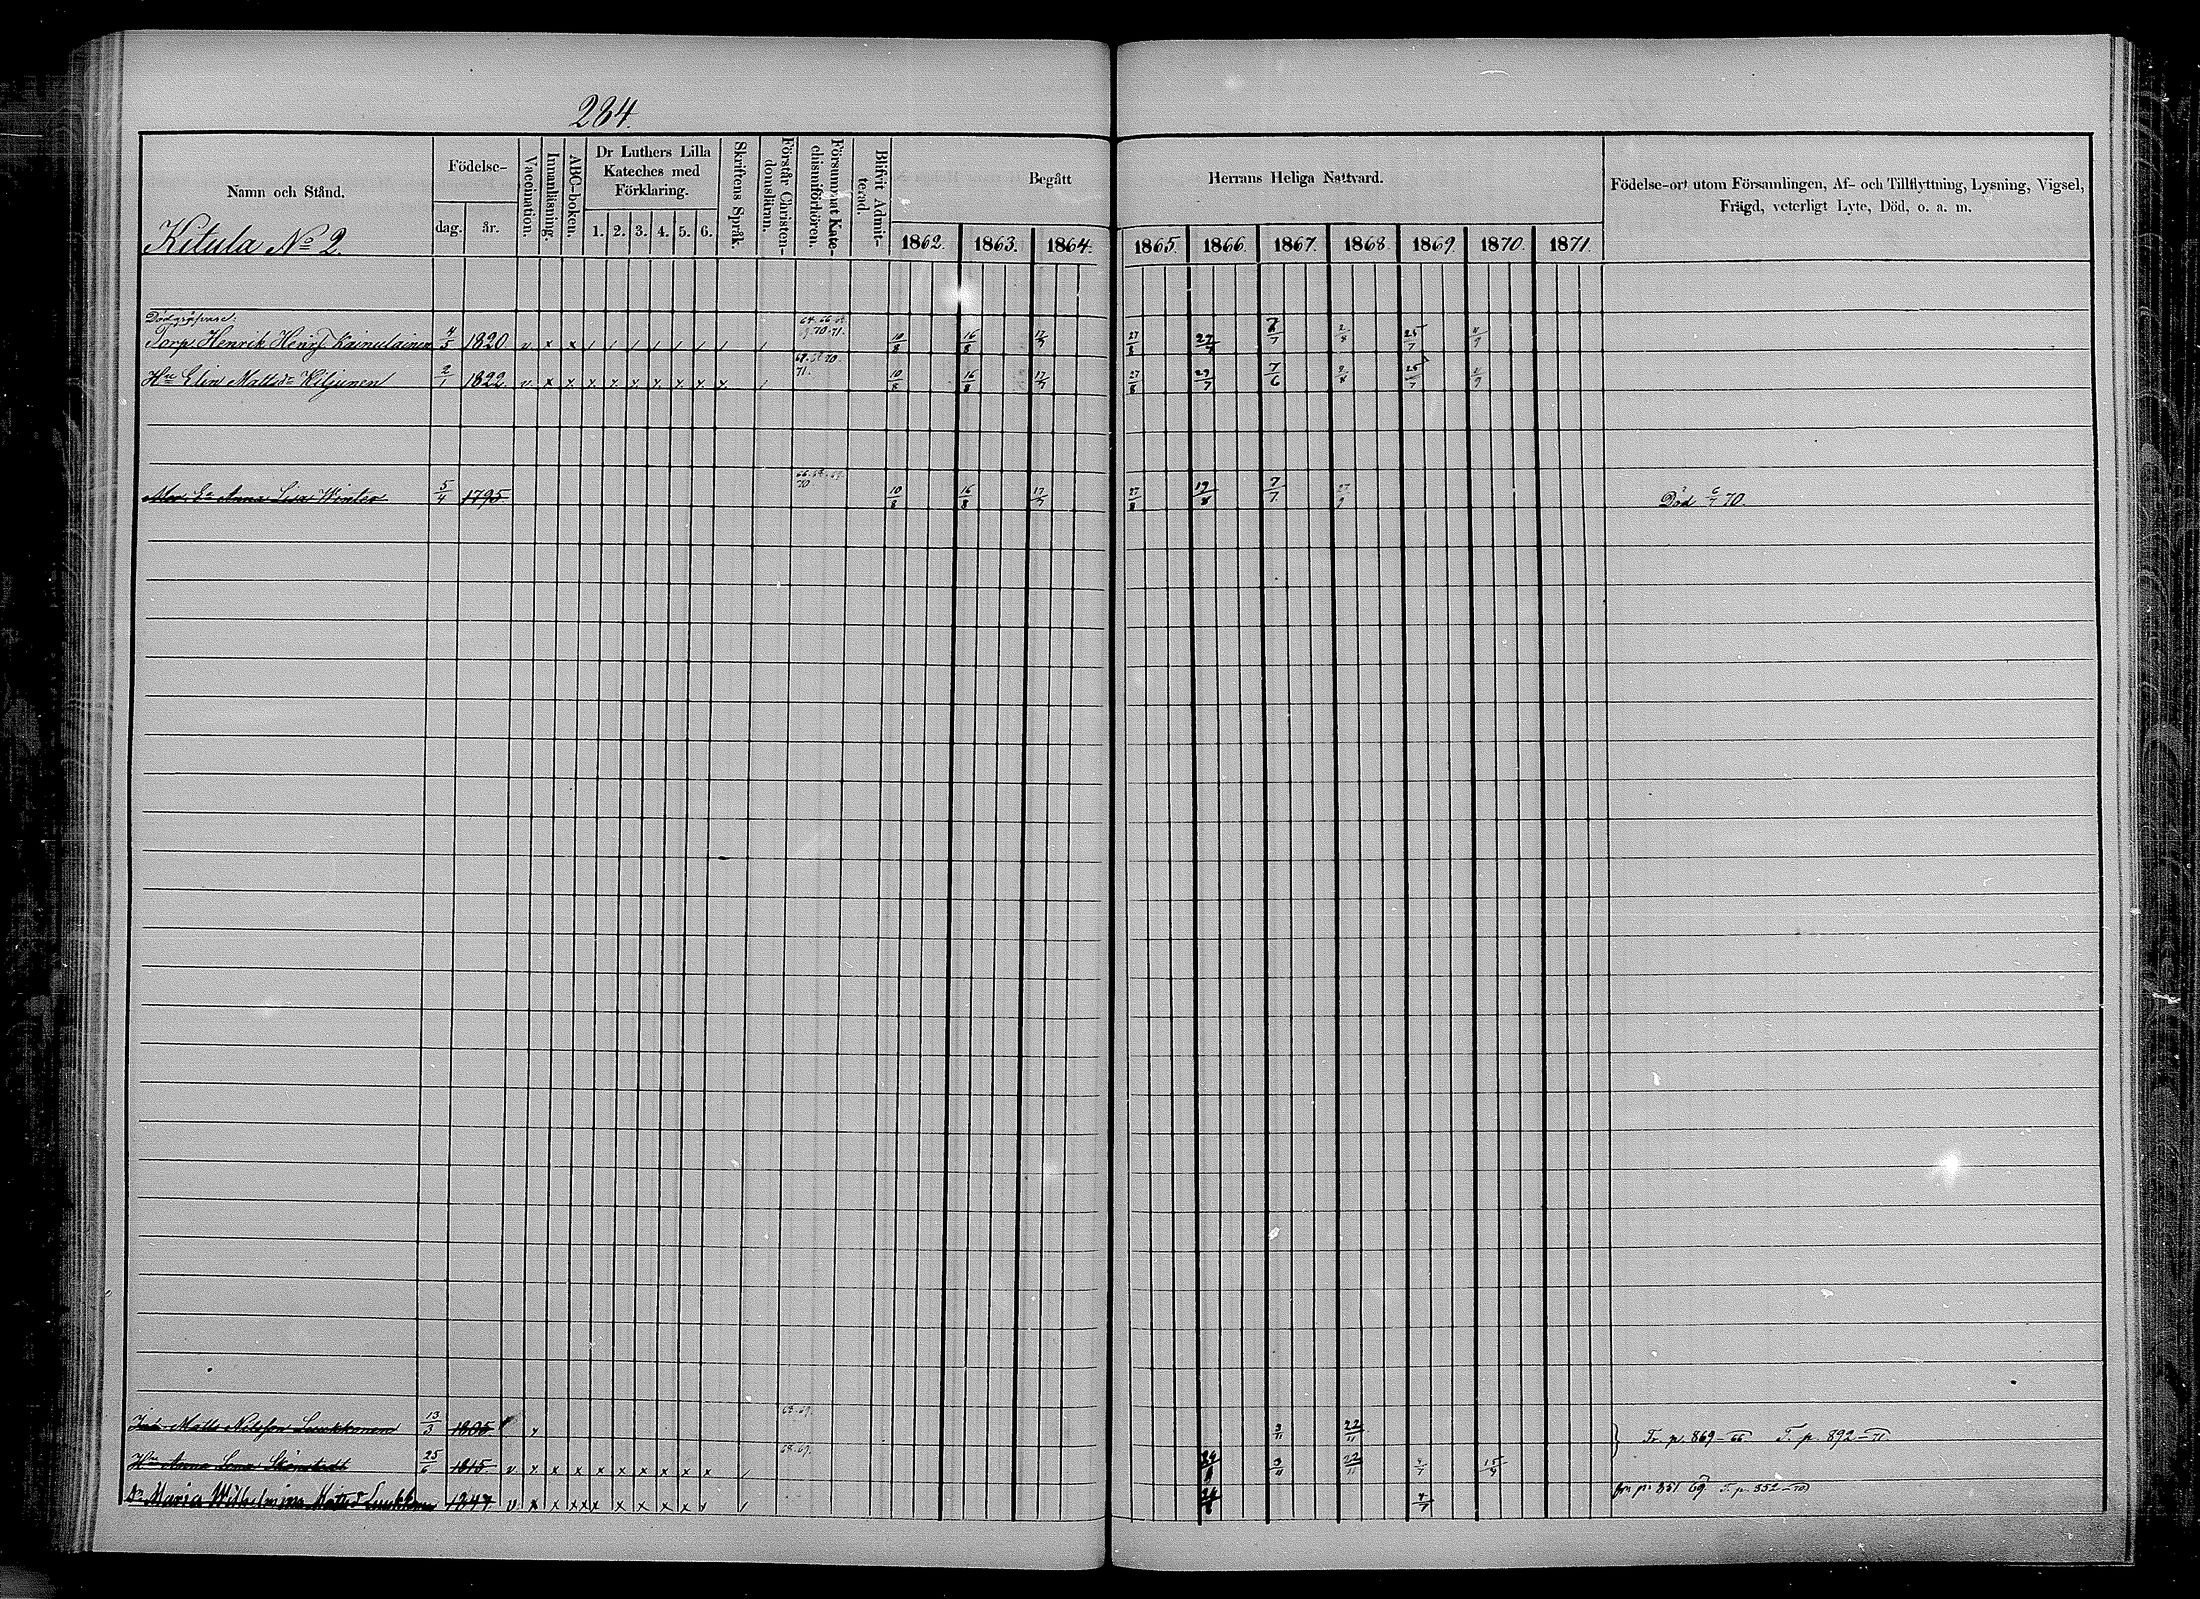 284.
Namn och Stånd.
Födelse-
dag. år.
Vaccination.
Innanläsning.
ABC-boken.
Dr Luthers Lilla
Kateches med
Förklaring.
1. 2. 3. 4. 5. 6.
Skriftens Språk.
Förstår Christen-
domsläran.
Försummat Kate-
chismiförhören.
Blifvit Admit-
terad.
Begått Herrans Heliga Nattvard.
1862. 1863. 1864. 1865. 1866. 1867. 1868. 1869. 1870. 1871.
Födelse-ort utom Församlingen, Af- och Tillflyttning, Lysning, Vigsel,
Frägd, veterligt Lyte, Död, o. a. m.
Kitula No 2.
Dödgräfvare.
Torp Henrik Henrs Kainulainen 4/5 1820 v x x 10/8 16/8 17/7 27/8 27/7 2/8 25/7 11/9
71.
Hu Elin Matts dr Kiljunen 2/1 1822 v x x x x x x x x x 10/8 16/8 17/7 27/8 29/7 7/6 2/8 25/7 11/9
70
Anna Lisa Winter 5/4 1795 10/8 16/8 17/7 27/8 19/8 7/7 27/9 Död 70.
68.69.
Matts Nilsson Luukkonen 13/3 1805 3/11 22/11 Fr. p. 869-66 T. p. 892-71
68.69.
Hu Anna Lena Skönstedt 25/6 1815 v x x x x x x x x 3/11 22/11 15/9
Dr Maria Wilhelmina Matts dr 1847 v x x x x x x x x frn p. 851 69 T. p. 852-70